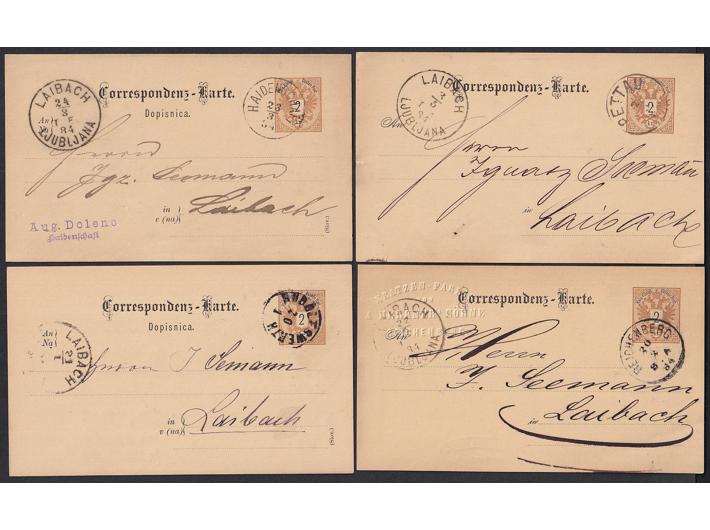 LAIBACH
24
3
84
LJUBLJANA
Correspondenz-Karte.
Dopisnica.
HAIDEN
23
3
84
2
An
Herrn
Jgz. Seemann
in
v (na)
Laibach
Aug. Doleno
Haidenschaft
(Slov.)
LAIBACH
3
3
84
LJUBLJANA
Correspondenz-Karte.
PETTAU
2
An
Herrn
Ignatz Seeman
in
Laibach
Correspondenz-Karte.
Dopisnica.
RUDOLFSWERTH
20
1
2
An
Na
LAIBACH
21
1
Herrn J Semann
in
v (na)
Laibach
(Slov.)
Correspondenz-Karte.
2
LAIBACH
84
LJUBLJANA
REICHENBERG
20
84
An
Herrn
J. Seemann
in
Laibach